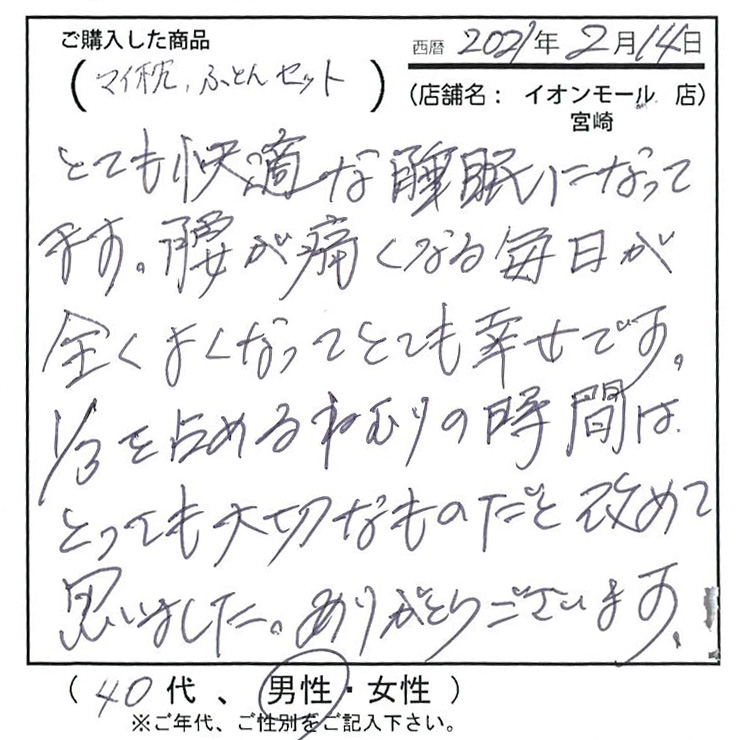 ご購入した商品
西暦 2021年 2月14日
(マイ枕、ふとんセット)
(店舗名： イオンモール 店)
宮崎
とても快適な睡眠になって
ます。腰が痛くなる毎日が
全くよくなってとても幸せです。
1/3を占めるねむりの時間は
とっても大切なものだと改めて
思いました。ありがとうございます。
(40代、男性・女性)
※ご年代、ご性別をご記入下さい。